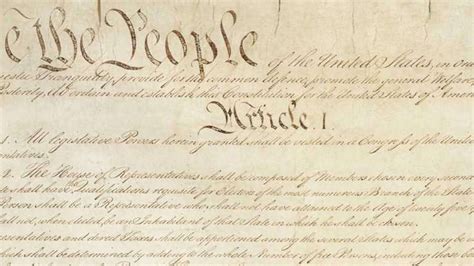 e the People
of the United States, in Ord
mestic Tranquility, provide for the common defence, promote the general Welfare
Posterity, do ordain and establish this Constitution for the United States of Amer
Article. I.
1. All legislative Powers herein granted shall be vested in a Congress of the United
entatives.
2. The House of Representatives shall be composed of Members chosen every secon
te shall have Qualifications requisite for Electors of the most numerous Branch of the State
Person shall be a Representative who shall not have attained to the Age of twenty five
hall not, when elected, be an Inhabitant of that State in which he shall be chosen.
entatives and direct Taxes shall be apportioned among the several States which may be
shall be determined by adding to the whole Number of free Persons, including those